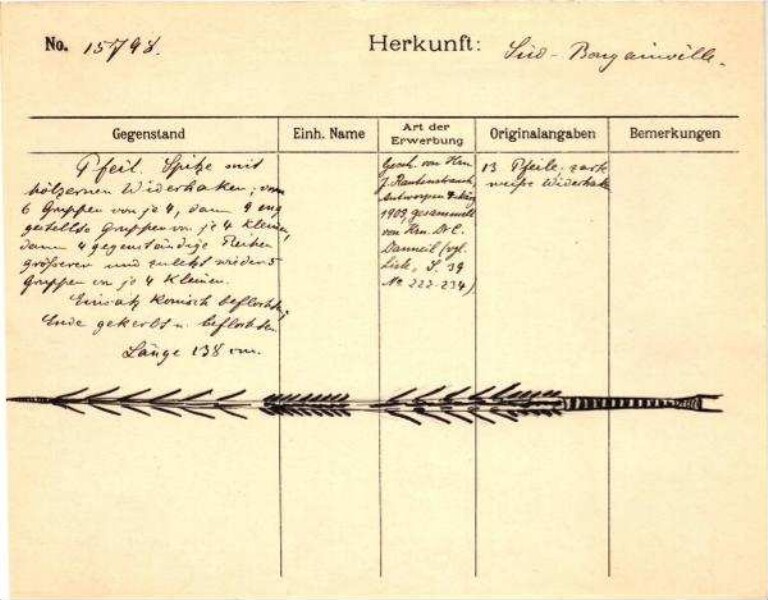 No. 15798.
Herkunft: Süd-Bougainville.
Gegenstand
Einh. Name
Art der Erwerbung
Originalangaben
Bemerkungen
Pfeil. Spitze mit
hölzernen Widerhaken; vorn
6 Gruppen von je 4, dann 9 eng
gestellte Gruppen von je 4 kleinen,
dann 4 gegenständige Reihen
größerer und zuletzt wieder 5
Gruppen von je 4 kleinen.
Einsatz konisch beflochten;
Ende gekerbt u. beflochten.
Länge 138 cm.
Gesch. von Hrn
J. Rautenstrauch,
Antwerpen
1903, gesammelt
von Hrn. Dr C.
Danneil (vgl.
Liste, S. 39
No 222-234)
13 Pfeile, zark
weisse Widerhak